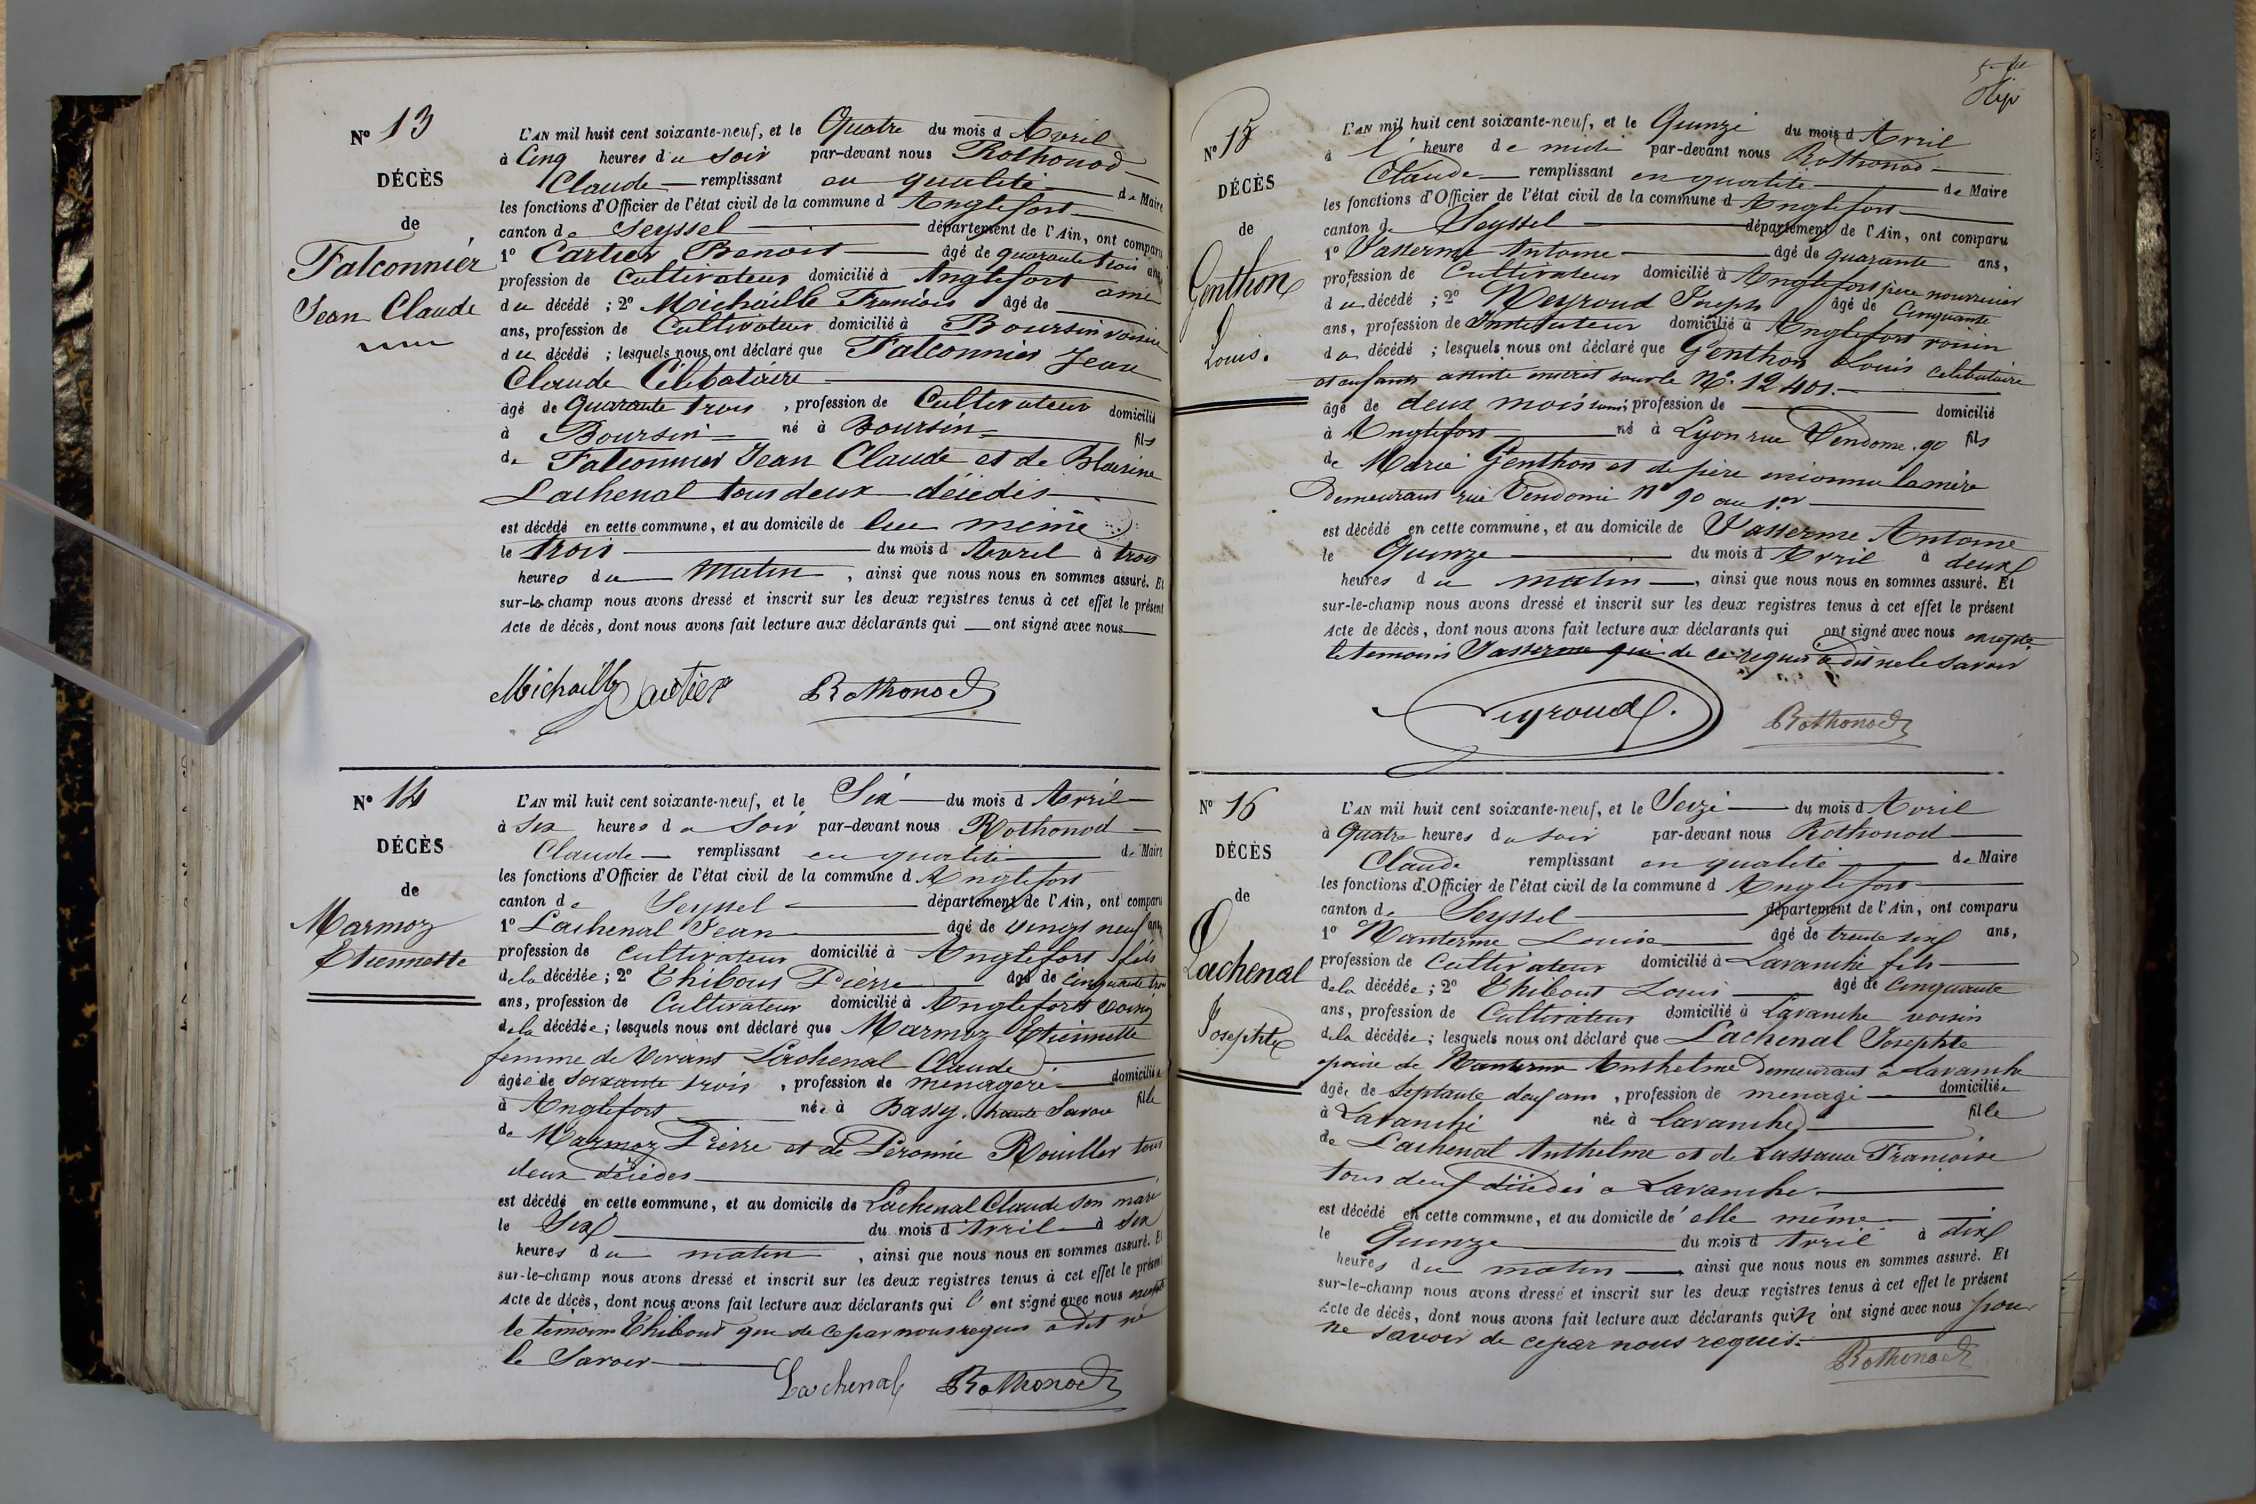 N° 13
DÉCÈS
de
Falconnier
Jean Claude
L'AN mil huit cent soixante-neuf, et le Quatre du mois d Avril
à Cinq heures du soir par-devant nous Rothonod
Claude remplissant en qualité de Maire
les fonctions d'Officier de l'état civil de la commune d Anglefort
canton de Seyssel département de l'Ain, ont comparu
1° Cartier Benoit âgé de quarante trois ans
profession de Cultivateur domicilié à Anglefort ami
du décédé ; 2° Michaille François âgé de
ans, profession de Cultivateur domicilié à Boursin voisin
du décédé ; lesquels nous ont déclaré que Falconnier Jean
Claude Célibataire
âgé de Quarante trois , profession de Cultivateur domicilié
à Boursin né à Boursin fils
de Falconnier Jean Claude et de Blaisine
Lachenal tous deux décédés
est décédé en cette commune, et au domicile de lui même
le trois du mois d Avril à trois
heures du Matin , ainsi que nous nous en sommes assuré. Et
sur-le-champ nous avons dressé et inscrit sur les deux registres tenus à cet effet le présent
Acte de décès, dont nous avons fait lecture aux déclarants qui ont signé avec nous
Michaille Cartier Rothonod
N° 14
DÉCÈS
de
Marmoz
Etiennette
L'AN mil huit cent soixante-neuf, et le Six du mois d Avril
à Six heures du Soir par-devant nous Rothonod
Claude remplissant en qualité de Maire
les fonctions d'Officier de l'état civil de la commune d Anglefort
canton de Seyssel département de l'Ain, ont comparu
1° Lachenal Jean âgé de vingt neuf ans
profession de cultivateur domicilié à Anglefort fils
de la décédée ; 2° Thibout Pierre âgé de cinquante trois
ans, profession de Cultivateur domicilié à Anglefort voisin
de la décédée ; lesquels nous ont déclaré que Marmoz Etiennette
femme de vivant Lachenal Claude
âgée de Soixante trois , profession de menagere domiciliée
à Anglefort née à Bassy, haute Savoie fille
de Marmoz Pierre et de Peronne Rouiller tous
deux décédés
est décédé en cette commune, et au domicile de Lachenal Claude son mari
le Six du mois d Avril à six
heures du matin , ainsi que nous nous en sommes assuré. Et
sur-le-champ nous avons dressé et inscrit sur les deux registres tenus à cet effet le présent
Acte de décès, dont nous avons fait lecture aux déclarants qui l' ont signé avec nous excepté
le témoin Thibout que de ce par nous requis a dit ne
le Savoir
Lachenal Rothonod
N° 15
DÉCÈS
de
Genthon
Louis.
L'AN mil huit cent soixante-neuf, et le Quinze du mois d Avril
à l' heure de midi par-devant nous Rothonod
Claude remplissant en qualité de Maire
les fonctions d'Officier de l'état civil de la commune d Anglefort
canton de Seyssel département de l'Ain, ont comparu
1° Vasserme Antoine âgé de quarante ans,
profession de Cultivateur domicilié à Anglefort père nourricier
du décédé ; 2° Neyroud Joseph âgé de Cinquante
ans, profession de Instituteur domicilié à Anglefort voisin
du décédé ; lesquels nous ont déclaré que Genthon Louis célibataire
et enfant assisté inscrit sous le N° 12401.
âgé de deux mois profession de domicilié
à Anglefort né à Lyon rue Vendome 90 fils
de Marie Genthon et de père inconnu la mère
Demeurant rue Vendome N° 90 au 1er
est décédé en cette commune, et au domicile de Vasserme Antoine
le Quinze du mois d Avril à deux
heures du matin , ainsi que nous nous en sommes assuré. Et
sur-le-champ nous avons dressé et inscrit sur les deux registres tenus à cet effet le présent
Acte de décès, dont nous avons fait lecture aux déclarants qui ont signé avec nous excepté
le temoin Vasserme qui de ce requis a dit ne le savoir
Neyroud Rothonod
N° 16
DÉCÈS
de
Lachenal
Josephte
L'AN mil huit cent soixante-neuf, et le Seize du mois d Avril
à Quatre heures du soir par-devant nous Rothonod
Claude remplissant en qualité de Maire
les fonctions d'Officier de l'état civil de la commune d Anglefort
canton de Seyssel département de l'Ain, ont comparu
1° Nanterme Louise âgé de trente six ans,
profession de Cultivateur domicilié à Lavanche fils
de la décédée ; 2° Thibout Louis âgé de cinquante
ans, profession de Cultivateur domicilié à Lavanche voisin
de la décédée ; lesquels nous ont déclaré que Lachenal Josephte
epouse de Nanterme Anthelme Demeurant a Lavanche
âgée de Septante deux ans , profession de menage domiciliée
à Lavanche née à Lavanche fille
de Lachenal Anthelme et de Lassaux Françoise
tous deux décédés a Lavanche.
est décédé en cette commune, et au domicile de elle même
le Quinze du mois d Avril à dix
heures du matin , ainsi que nous nous en sommes assuré. Et
sur-le-champ nous avons dressé et inscrit sur les deux registres tenus à cet effet le présent
Acte de décès, dont nous avons fait lecture aux déclarants qui n' ont signé avec nous pour
ne savoir de ce par nous requis.
Rothonod